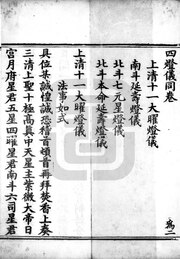 四燈儀同卷
上清十一大曜燈儀
南斗延壽燈儀
北斗七元星燈儀
北斗本命延壽燈儀
上清十一大曜燈儀
法事如式
具位某誠惶誠恐稽首頓首再拜焚香上奏
三清上聖十極高真中天星主紫微大帝日
宮月府星君五星四曜星君南斗六司星君
爲二